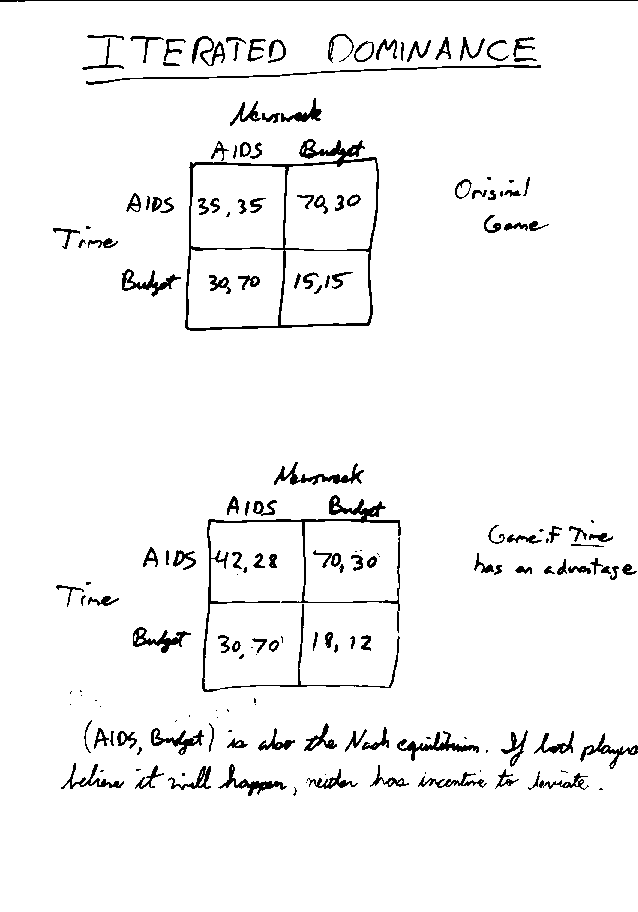 ITERATED DOMINANCE
Newsweek
AIDS Budget
AIDS 35, 35 70, 30
Original
Game
Time
Budget 30, 70 15, 15
Newsweek
AIDS Budget
AIDS 42, 28 70, 30
Game if Time
has an advantage
Time
Budget 30, 70 18, 12
(AIDS, Budget) is also the Nash equilibrium. If both players
believe it will happen, neither has incentive to deviate.